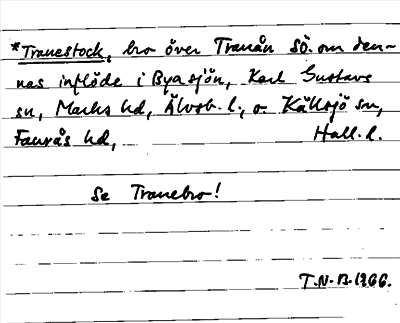 *Tranestock, bro över Tranån SÖ. om den-
nas inflöde i Byasjön, Karl Gustavs
sn, Marks hd, Älvsb. l., o. Källsjö sn,
Faurås hd, Hall. l.
Se Tranebro!
T.N.B. 1966.